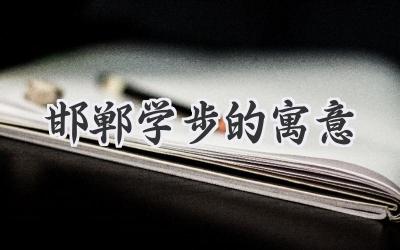 邯郸学步的寓意